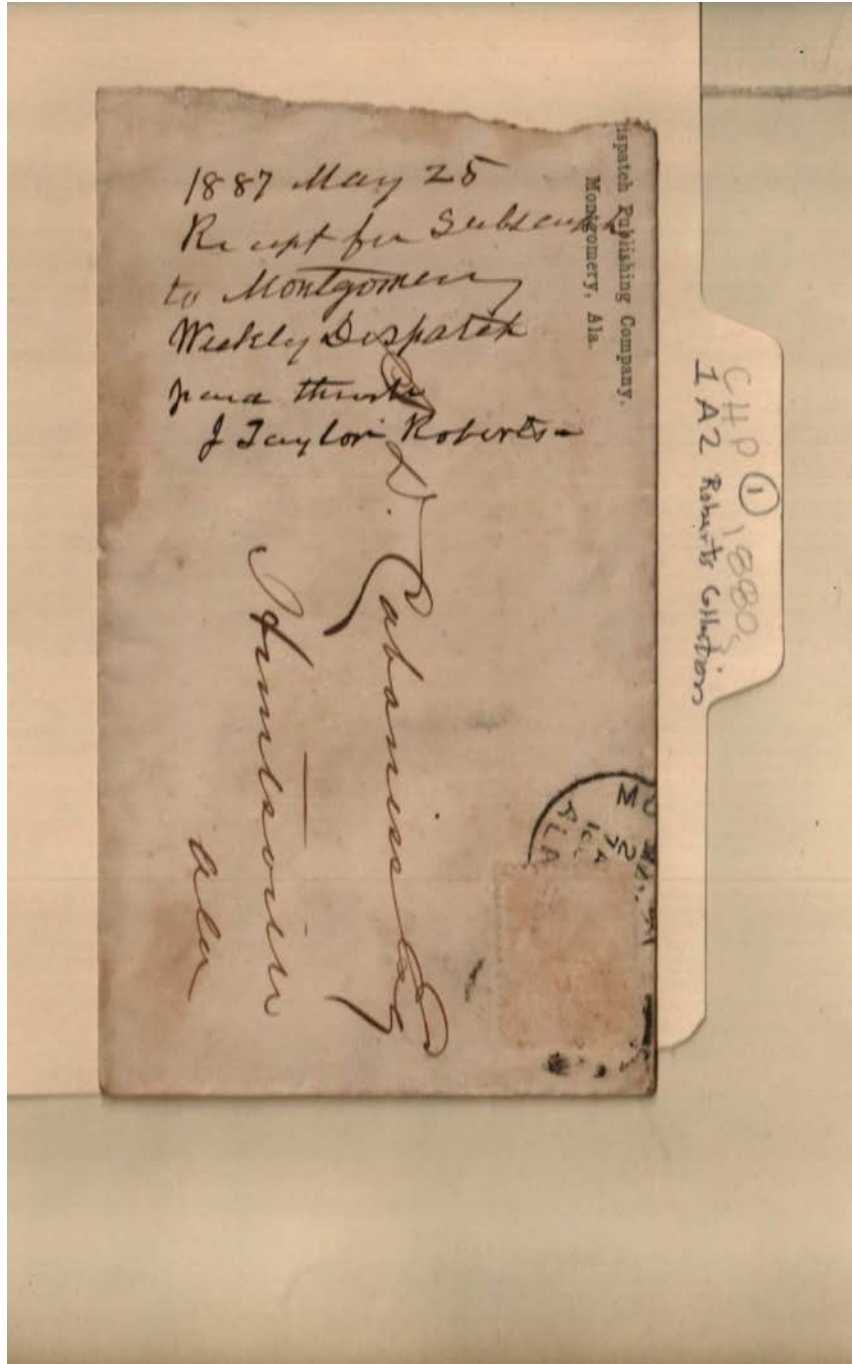 1887 May 25
Receipt for Subscript
to Montgomery
Weekly Dispatch
paid through
J Taylor Roberts
ispatch Publishing Company,
Montgomery, Ala.
D. Cabaniss Esq
Huntsville
Ala
CHP 1 1880s
1A2 Roberts Collection